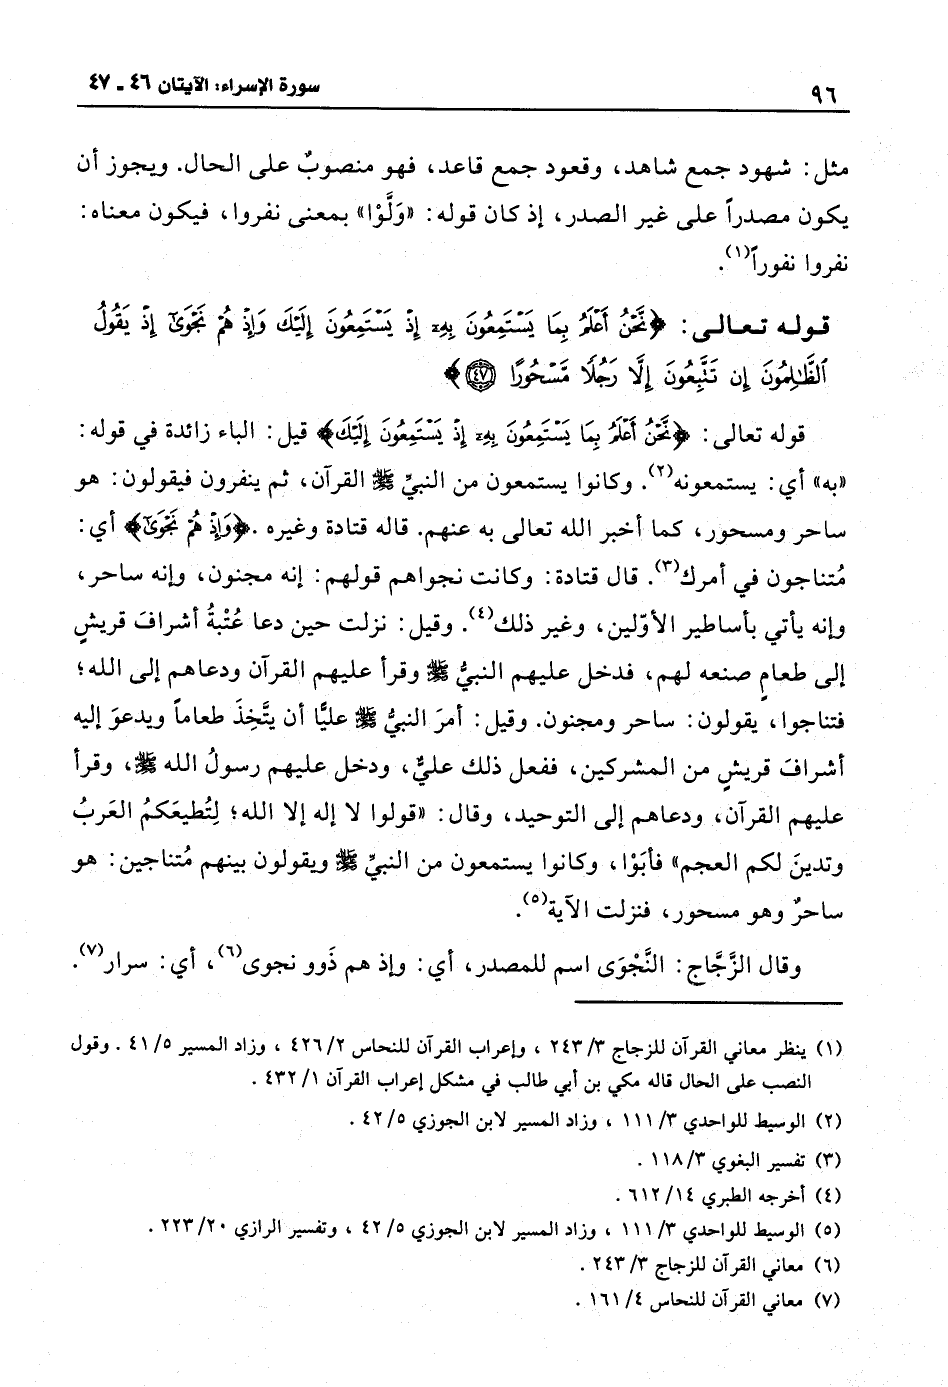 ٩٦
سورة الإسراء: الآيتان ٤٦ ـ ٤٧
مثل: شهود جمع شاهد، وقعود جمع قاعد، فهو منصوبٌ على الحال. ويجوز أن
يكون مصدراً على غير الصدر، إذ كان قوله: «وَلَّوْا» بمعنى نفروا، فيكون معناه:
نفروا نفوراً(١).
قوله تعالى: ﴿نَّحْنُ أَعْلَمُ بِمَا يَسْتَمِعُونَ بِهِۦٓ إِذْ يَسْتَمِعُونَ إِلَيْكَ وَإِذْ هُمْ نَجْوَىٰٓ إِذْ يَقُولُ
ٱلظَّٰلِمُونَ إِن تَتَّبِعُونَ إِلَّا رَجُلًا مَّسْحُورًا ۝٤٧﴾
قوله تعالى: ﴿نَّحْنُ أَعْلَمُ بِمَا يَسْتَمِعُونَ بِهِۦٓ إِذْ يَسْتَمِعُونَ إِلَيْكَ﴾ قيل: الباء زائدة في قوله:
«به» أي: يستمعونه(٢). وكانوا يستمعون من النبيِّ ﷺ القرآن، ثم ينفرون فيقولون: هو
ساحر ومسحور، كما أخبر الله تعالى به عنهم. قاله قتادة وغيره .﴿وَإِذْ هُمْ نَجْوَىٰٓ﴾ أي:
مُتناجون في أمرك(٣). قال قتادة: وكانت نجواهم قولهم: إنه مجنون، وإنه ساحر،
وإنه يأتي بأساطير الأوّلين، وغير ذلك(٤). وقيل: نزلت حين دعا عُتْبةُ أشرافَ قريشٍ
إلى طعامٍ صنعه لهم، فدخل عليهم النبيُّ ﷺ وقرأ عليهم القرآن ودعاهم إلى الله؛
فتناجوا، يقولون: ساحر ومجنون. وقيل: أمرَ النبيُّ ﷺ عليًّا أن يتَّخِذَ طعاماً ويدعوَ إليه
أشرافَ قريشٍ من المشركين، ففعل ذلك عليٌّ، ودخل عليهم رسولُ الله ﷺ، وقرأ
عليهم القرآن، ودعاهم إلى التوحيد، وقال: «قولوا لا إله إلا الله؛ لِتُطيعَكمُ العَربُ
وتدينَ لكم العجم» فأبَوْا، وكانوا يستمعون من النبيِّ ﷺ ويقولون بينهم مُتناجين: هو
ساحرٌ وهو مسحور، فنزلت الآية(٥).
وقال الزَّجَّاج: النَّجْوَى اسم للمصدر، أي: وإذ هم ذَوو نجوى(٦)، أي: سرار(٧).
(١) ينظر معاني القرآن للزجاج ٣/ ٢٤٣ ، وإعراب القرآن للنحاس ٢/ ٤٢٦ ، وزاد المسير ٥/ ٤١ . وقول
النصب على الحال قاله مكي بن أبي طالب في مشكل إعراب القرآن ١/ ٤٣٢ .
(٢) الوسيط للواحدي ٣/ ١١١ ، وزاد المسير لابن الجوزي ٥/ ٤٢ .
(٣) تفسير البغوي ٣/ ١١٨ .
(٤) أخرجه الطبري ١٤/ ٦١٢ .
(٥) الوسيط للواحدي ٣/ ١١١ ، وزاد المسير لابن الجوزي ٥/ ٤٢ ، وتفسير الرازي ٢٠/ ٢٢٣ .
(٦) معاني القرآن للزجاج ٣/ ٢٤٣ .
(٧) معاني القرآن للنحاس ٤/ ١٦١ .